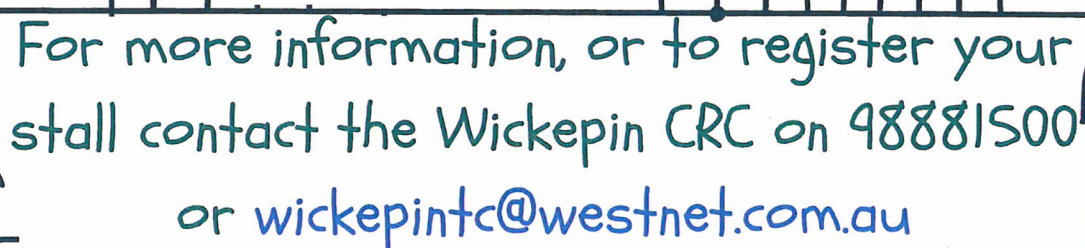 For more information, or to register your
stall contact the Wickepin CRC on 98881500
or wickepintc@westnet.com.au